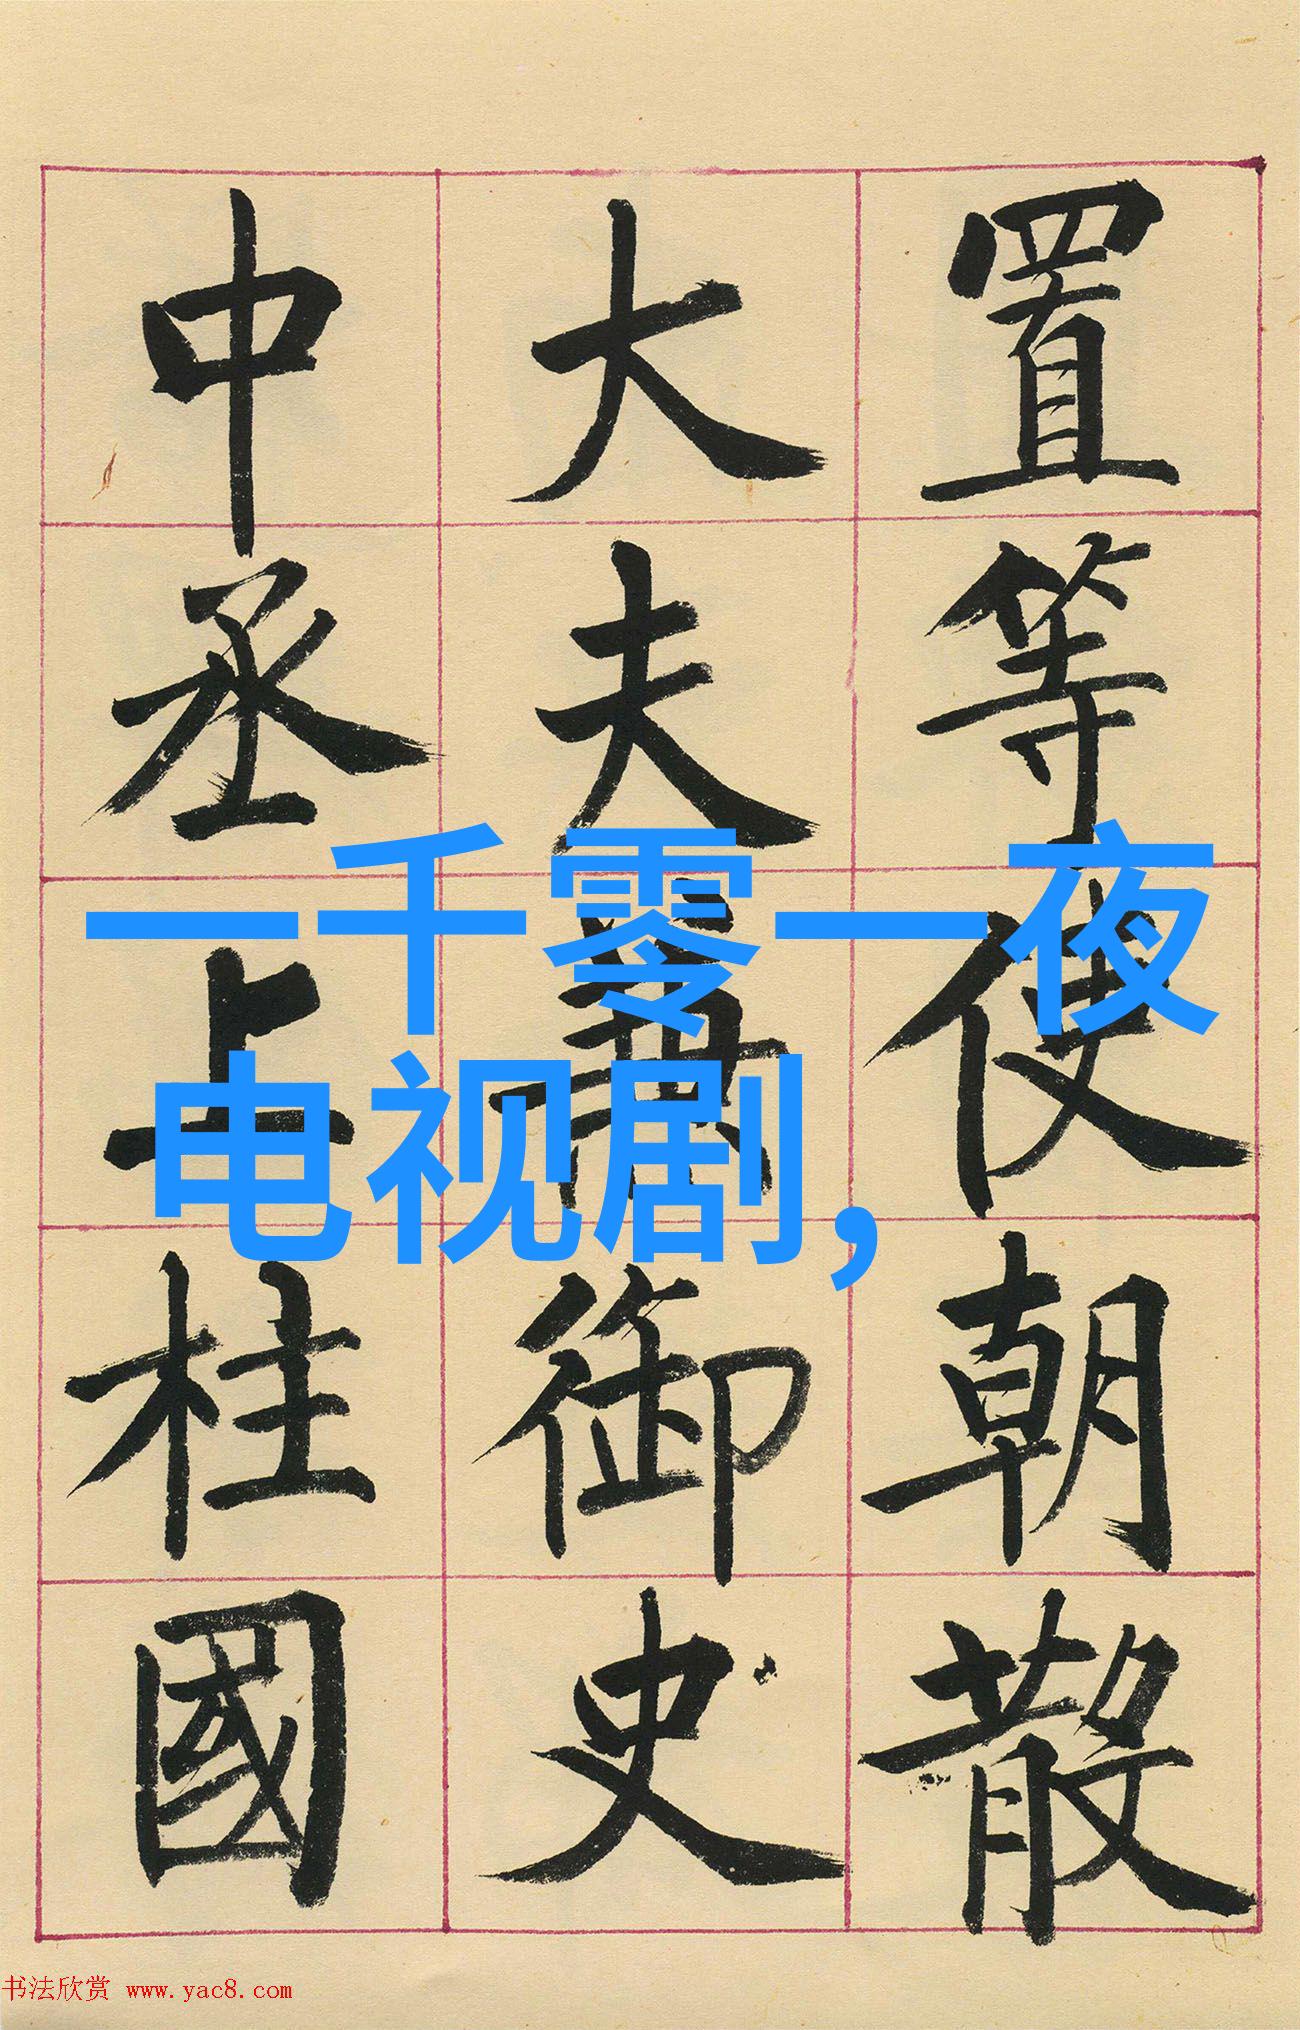 置等使朝散
大夫兼御史
中丞上柱國
一千零一夜
电视剧，
书法欣赏 www.yac8.com